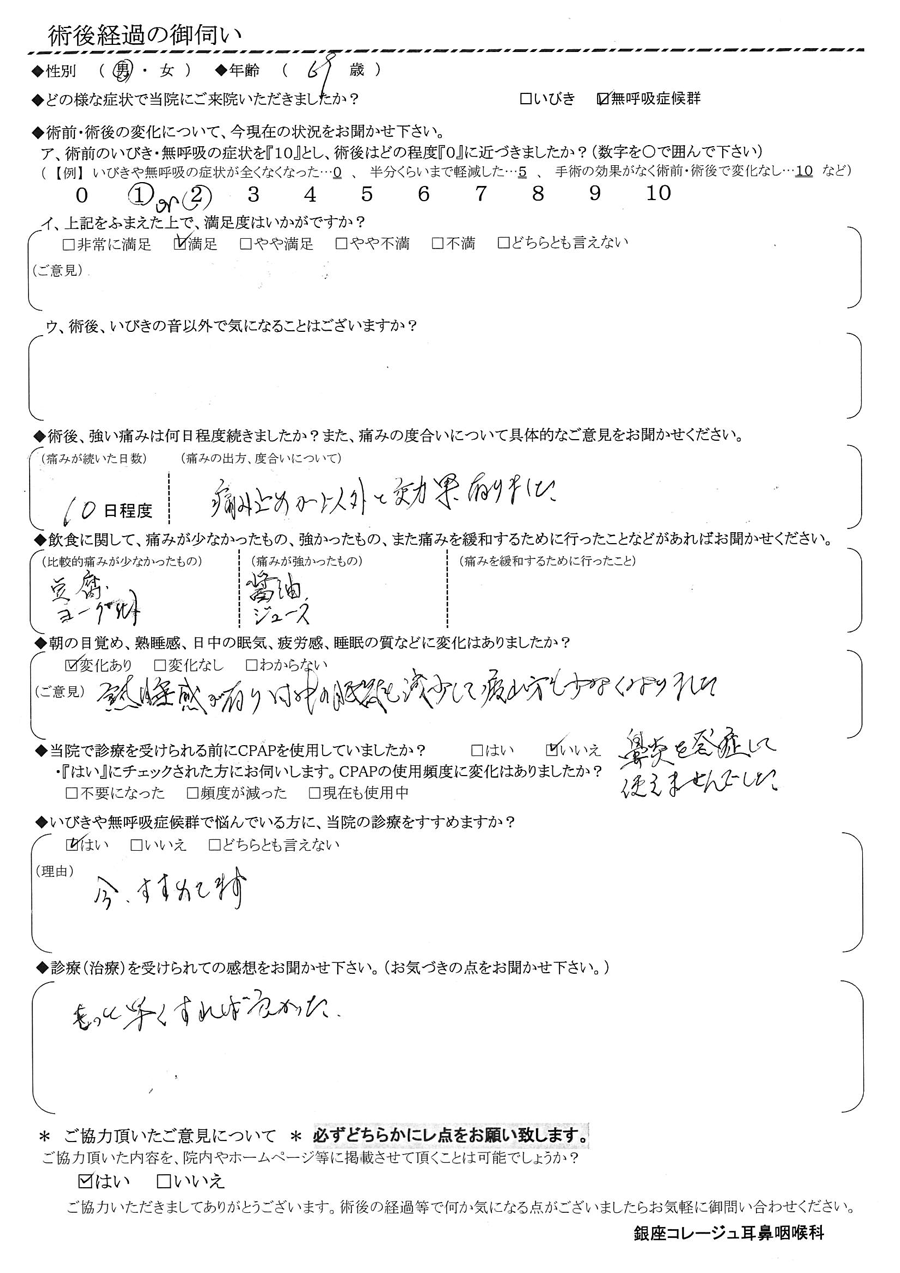 術後経過の御伺い
◆性別 （ 男 ・ 女 ） ◆年齢 （ 69 歳 ）
◆どの様な症状で当院にご来院いただきましたか？ □いびき ☑無呼吸症候群
◆術前・術後の変化について、今現在の状況をお聞かせ下さい。
ア、術前のいびき・無呼吸の症状を『10』とし、術後はどの程度『0』に近づきましたか？（数字を〇で囲んで下さい）
（【例】 いびきや無呼吸の症状が全くなくなった…0 、 半分くらいまで軽減した…5 、 手術の効果がなく術前・術後で変化なし…10 など）
0 ① or ② 3 4 5 6 7 8 9 10
イ、上記をふまえた上で、満足度はいかがですか？
□非常に満足 ☑満足 □やや満足 □やや不満 □不満 □どちらとも言えない
（ご意見）
ウ、術後、いびきの音以外で気になることはございますか？
◆術後、強い痛みは何日程度続きましたか？また、痛みの度合いについて具体的なご意見をお聞かせください。
（痛みが続いた日数） （痛みの出方、度合いについて）
10 日程度 痛み止めが以外と効果有りました
◆飲食に関して、痛みが少なかったもの、強かったもの、また痛みを緩和するために行ったことなどがあればお聞かせください。
（比較的痛みが少なかったもの） （痛みが強かったもの） （痛みを緩和するために行ったこと）
豆腐 醤油
ヨーグルト ジュース
◆朝の目覚め、熟睡感、日中の眠気、疲労感、睡眠の質などに変化はありましたか？
☑変化あり □変化なし □わからない
（ご意見） 熟睡感が有り日中の眠気も減少して疲れ方も少なくなりました
◆当院で診療を受けられる前にCPAPを使用していましたか？ □はい ☑いいえ 鼻炎を発症して
・『はい』にチェックされた方にお伺いします。CPAPの使用頻度に変化はありましたか？ 使えませんでした。
□不要になった □頻度が減った □現在も使用中
◆いびきや無呼吸症候群で悩んでいる方に、当院の診療をすすめますか？
☑はい □いいえ □どちらとも言えない
（理由）
今、すすめて
◆診療（治療）を受けられての感想をお聞かせ下さい。（お気づきの点をお聞かせ下さい。）
もっと早くすれば良かった。
＊ ご協力頂いたご意見について ＊ 必ずどちらかにレ点をお願い致します。
ご協力頂いた内容を、院内やホームページ等に掲載させて頂くことは可能でしょうか？
☑はい □いいえ
ご協力いただきましてありがとうございます。術後の経過等で何か気になる点がございましたらお気軽に御問い合わせください。
銀座コレージュ耳鼻咽喉科